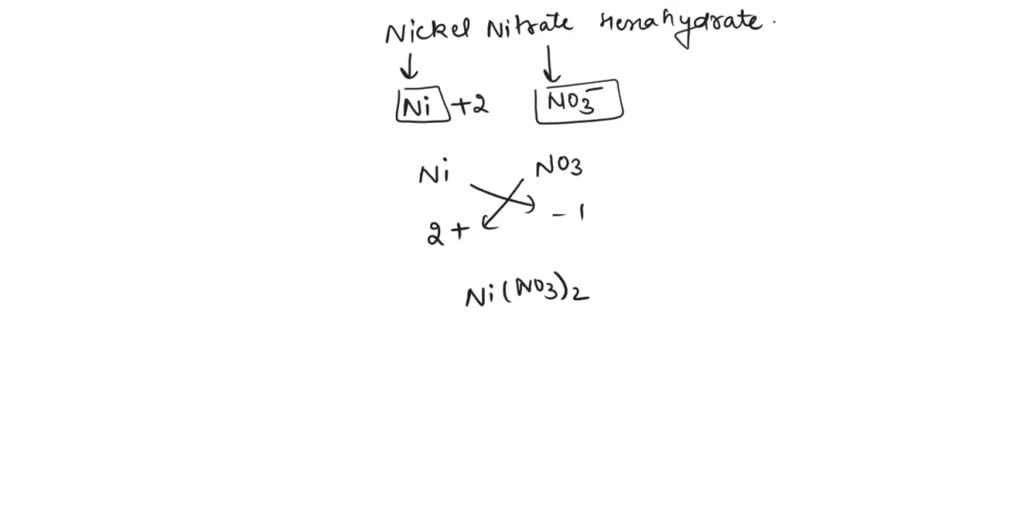 Nickel Nitrate Hexahydrate.
Ni +2 NO3⁻
Ni NO3
2+ -1
Ni(NO3)2